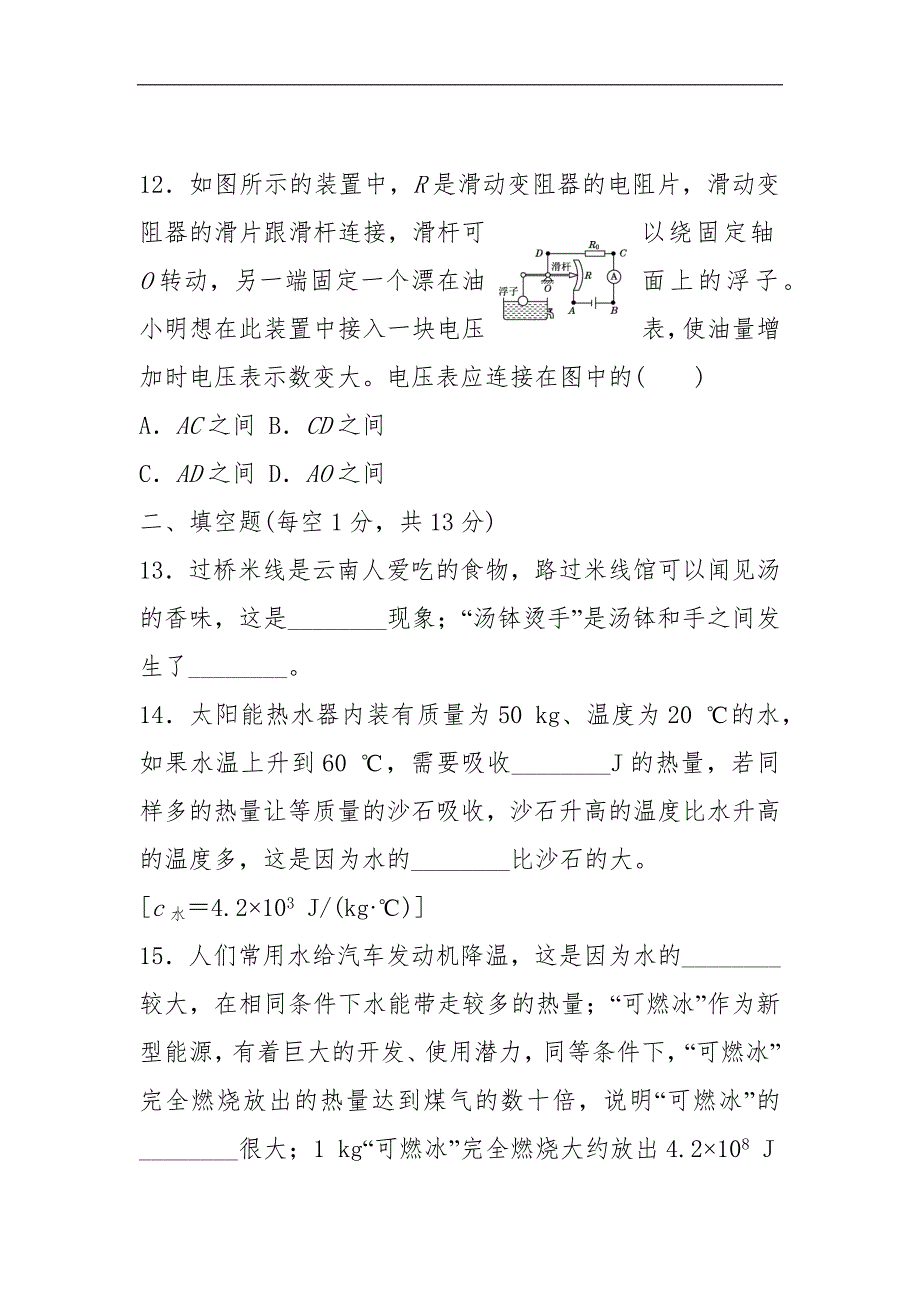 12．如图所示的装置中，R是滑动变阻器的电阻片，滑动变
阻器的滑片跟滑杆连接，滑杆可以绕固定轴
O转动，另一端固定一个漂在油面上的浮子。
小明想在此装置中接入一块电压表，使油量增
加时电压表示数变大。电压表应连接在图中的(　　)
D R₀ C
滑杆 R A
浮子 O
A B
A．AC之间 B．CD之间
C．AD之间 D．AO之间
二、填空题(每空1分，共13分)
13．过桥米线是云南人爱吃的食物，路过米线馆可以闻见汤
的香味，这是________现象；“汤钵烫手”是汤钵和手之间发
生了________。
14．太阳能热水器内装有质量为50 kg、温度为20 ℃的水，
如果水温上升到60 ℃，需要吸收________J的热量，若同
样多的热量让等质量的沙石吸收，沙石升高的温度比水升高
的温度多，这是因为水的________比沙石的大。
[c水＝4.2×10³ J/(kg·℃)]
15．人们常用水给汽车发动机降温，这是因为水的________
较大，在相同条件下水能带走较多的热量；“可燃冰”作为新
型能源，有着巨大的开发、使用潜力，同等条件下，“可燃冰”
完全燃烧放出的热量达到煤气的数十倍，说明“可燃冰”的
________很大；1 kg“可燃冰”完全燃烧大约放出4.2×10⁸ J